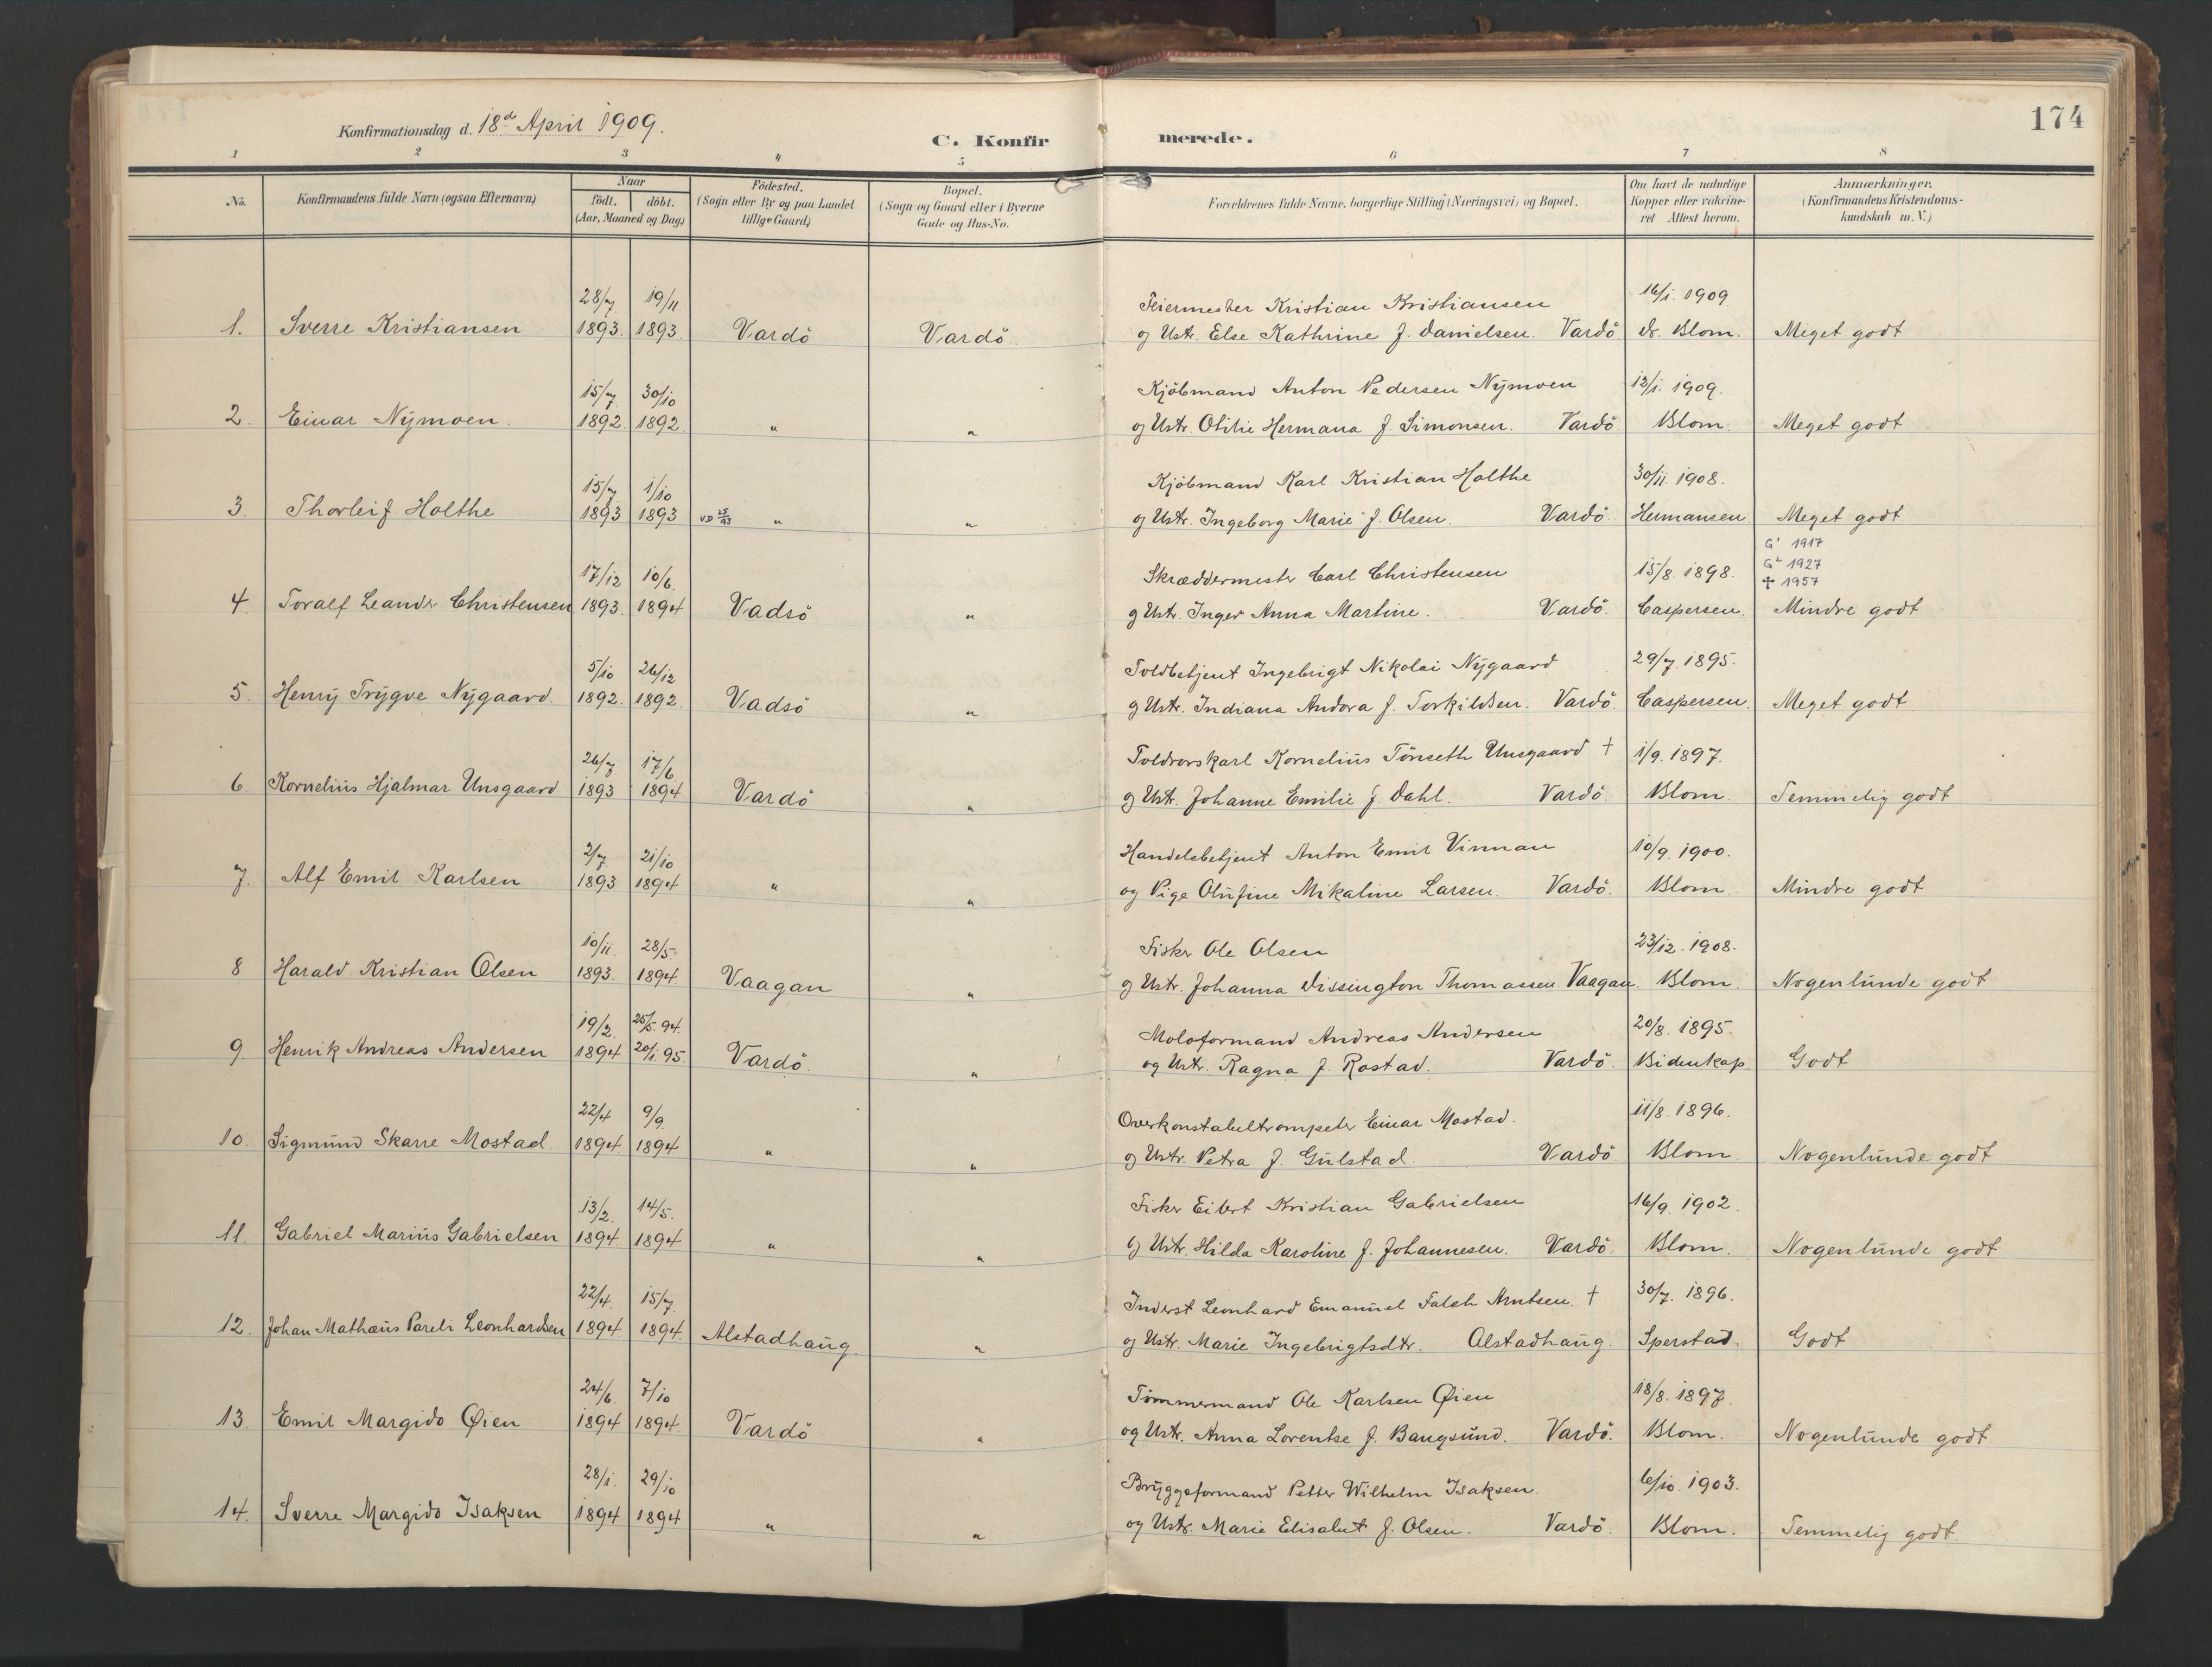 174
Konfirmationsdag d. 18de April 1909.
C. Konfirmerede.
1 2 3 4 5 6 7 8
No. Konfirmandens fulde Navn (ogsaa Efternavn) Naar født. døbt. (Aar, Maaned og Dag) Fødested. (Sogn eller By og paa Landet tillige Gaard) Bopæl. (Sogn og Gaard eller i Byerne Gade og Hus-No. Forældrenes fulde Navne, borgerlige Stilling (Næringsvei) og Bopæl. Om havt de naturlige Kopper eller vakcineret Attest herom. Anmærkninger. (Konfirmandens Kristendomskundskab m. V.)
28/7 19/11 Feiermester Kristian Kristiansen 16/1. 1909.
1. Sverre Kristiansen 1893. 1893 Vardö Vardö. og Ustr. Else Kathrine f. Danielsen. Vardö Dr. Blom. Meget godt
15/7 30/10 Kjöbmand Anton Pedersen Nÿmoen 12/1. 1909.
2. Einar Nÿmoen. 1892. 1892 " " og Ustr. Otilie Hermana f. Simonsen. Vardö Blom. Meget godt
15/7 1/10 Kjöbmand Karl Kristian Holthe 30/11. 1908.
3. Thorleif Holthe 1893 1893 VD 25/93 " " og Ustr. Ingeborg Marie f. Olsen. Vardö. Hermansen Meget godt
G¹ 1917
G² 1927
✝ 1957
17/12 10/6. Skræddermester Carl Christensen 15/8. 1898.
4. Toralf Leander Christensen 1893. 1894 Vadsö " og Ustr. Inger Anna Martine. Vardö. Caspersen. Mindre godt
5/10 26/12 Toldbetjent Ingebrigt Nikolai Nÿgaard 29/7. 1895.
5. Henrÿ Trÿgve Nÿgaard. 1892. 1892. Vadsö " og Ustr. Indiana Andora f. Torkildsen. Vardö. Caspersen. Meget godt
26/7 17/6 Toldrorskarl Kornelius Tönseth Unsgaard † 1/9. 1897.
6. Kornelius Hjalmar Unsgaard 1893 1894 Vardö " og Ustr. Johanne Emilie f. Dahl. Vardö. Blom. Temmelig godt
2/7. 21/10 Handelsbetjent Anton Emil Vinnan 10/9. 1900.
7. Alf Emil Karlsen 1893 1894 " " og Pige Olufine Mikaline Larsen. Vardö. Blom Mindre godt
10/11. 28/5. Fisker Ole Olsen 23/12. 1908.
8 Harald Kristian Olsen 1893. 1894. Vaagan " og Ustr. Johanna Dissington Thomassen. Vaagan. Blom. Nogenlunde godt
19/2. 25/5. 94. Moloformand Andreas Andersen 20/8. 1895.
9. Henrik Andreas Andersen 1894 20/1. 95. Vardö. " og Ustr. Ragna f. Rostad. Vardö. Bidenkap. Godt
22/4 9/9 Overkonstabeltrompeter Einar Mostad. 11/8. 1896.
10. Sigmund Skarre Mostad. 1894. 1894 " " og Ustr. Petra f. Gulstad. Vardö Blom Nogenlunde godt
13/2. 14/5. Fisker Eibert Kristian Gabrielsen 16/9. 1902.
11. Gabriel Marius Gabrielsen 1894. 1894 " " og Ustr. Hilda Karoline f. Johannesen. Vardö. Blom. Nogenlunde godt
22/4. 15/7. Inderst Leonhard Emanuel Falch Arntsen. † 30/7. 1896.
12. Johan Mathæus Pareli Leonhardsen 1894 1894. Alstadhaug. " og Ustr. Marie Ingebrigtsdtr. Alstadhaug Sperstad. Godt
24/6 7/10 Tömmermand Ole Karlsen Øien 18/8. 1897.
13. Emil Margido Øien 1894 1894. Vardö " og Ustr. Anna Lorentse f. Bangsund. Vardö. Blom. Nogenlunde godt
28/1. 29/10 Brÿggeformand Petter Wilhelm Isaksen. 6/10. 1903.
14. Sverre Margido Isaksen 1894 1894 " " og Ustr. Marie Elisabet f. Olsen. Vardö. Blom. Temmelig godt.